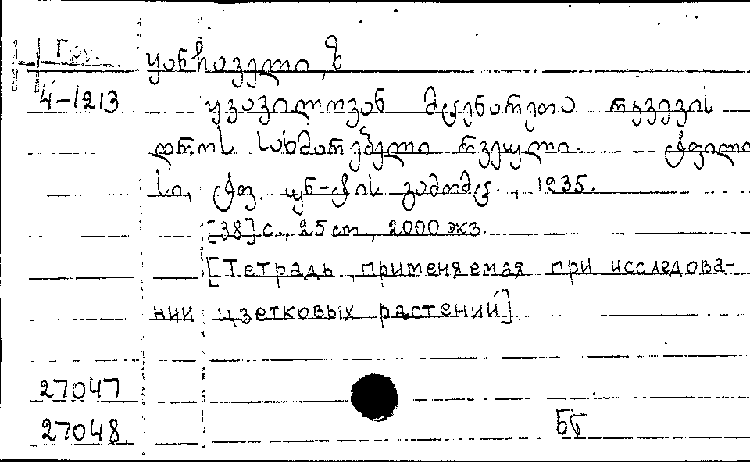 Гру.
ყანჩაველი, ზ
4-1213
ყვავილოვან მცენარეთა რკვევის
დროს სახმარებელი რვეული. ტფილი
სი, ტფ. უნ-ტის გამომც., 1935.
[38] с., 25 cm, 2000 экз.
[Тетрадь, применяемая при исследова-
нии цветковых растений]
27047
27048
ББ